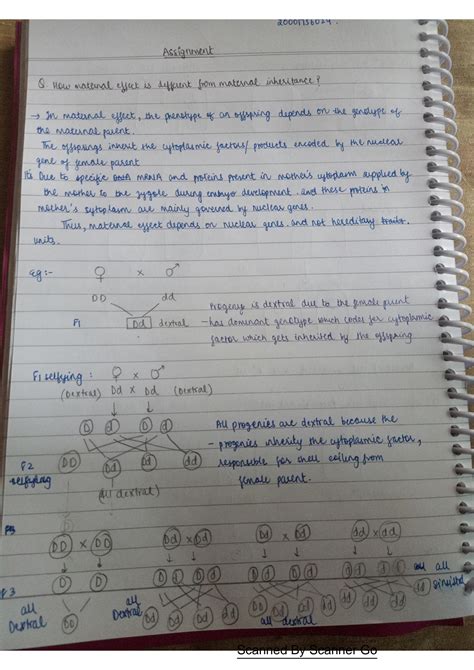 Assignment
Q. How maternal effect is different from maternal inheritance?
→ In maternal effect, the phenotype of an offspring depends on the genotype of
the maternal parent.
The offsprings inherit the cytoplasmic factors/ products encoded by the nuclear
gene of female parent
Due to specific mRNA and proteins present in mother's cytoplasm supplied by
the mother to the zygote during embryo development. and these proteins in
mother's cytoplasm are mainly governed by nuclear genes.
Thus, maternal effect depends on nuclear genes. and not hereditary
units.
eg:- ♀ × ♂
DD dd
F1 Dd dextral
Progeny is dextral due to the female parent
- has dominant genotype which codes for cytoplasmic
factor which gets inherited by the offspring
F1 selfying : ♀ × ♂
(Dextral) Dd × Dd (Dextral)
↓ ↓
D d D d
F2 DD Dd Dd dd
selfying
(all dextral)
All progenies are dextral because the
- progenies inherit the cytoplasmic factor,
responsible for shell coiling from
female parent.
DD × DD Dd × Dd Dd × Dd dd × dd
↓ ↓ ↓ ↓ ↓ ↓ ↓ ↓
D D D d D d D d D d d d d d
all sinistral
all
Dextral
DD
all
Dextral
DD Dd Dd dd
all dextral
Scanned By Scanner Go